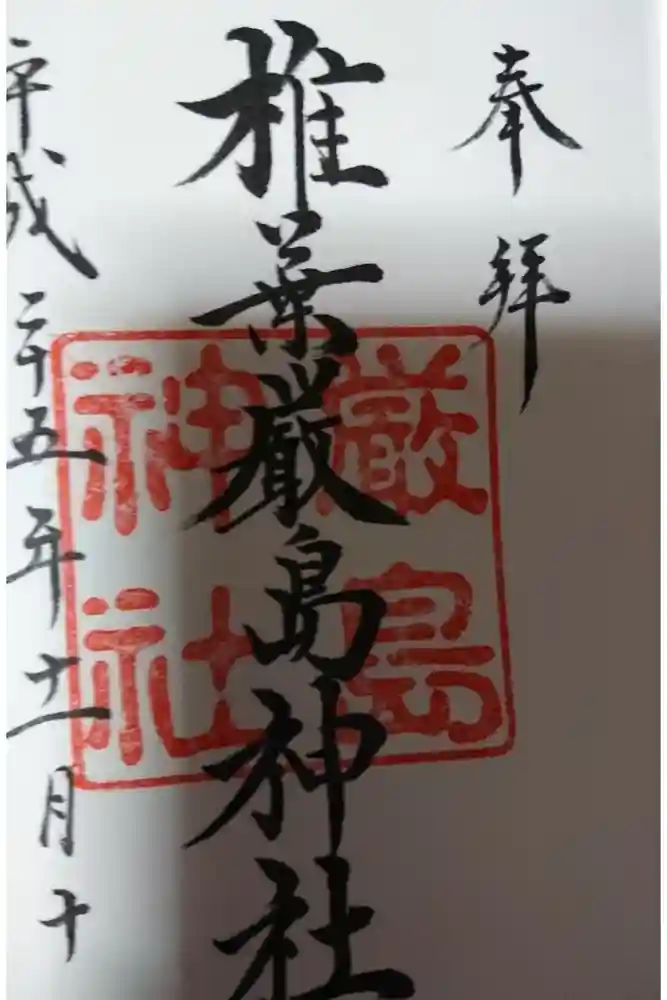 奉拝
椎葉厳島神社
厳島
神社
平成二十五年十一月十